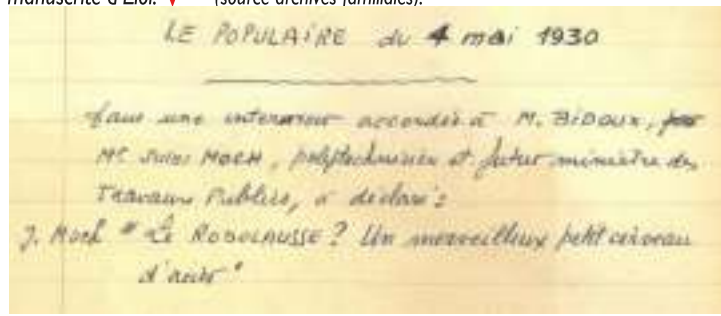 manuscrite d'Eloi. (source archives familiales).
LE POPULAIRE du 4 mai 1930
Dans une interview accordée à M. BIDOUX, par
Mr Jules MOCH, polytechnicien et futur ministre des
Travaux Publics, a déclaré :
J. Moch " Le ROBOLAUSSE ? Un merveilleux petit cerveau
d'acier "